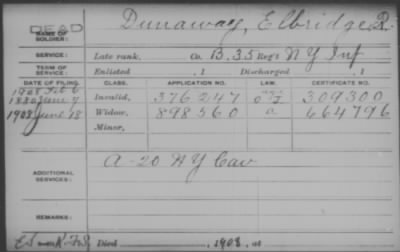 DEAD
NAME OF SOLDIER: Dunaway, Elbridge R.
SERVICE: Late rank, Co. B, 35 Reg't N Y Inf
TERM OF SERVICE: Enlisted , 1 Discharged , 1
DATE OF FILING. CLASS. APPLICATION NO. LAW. CERTIFICATE NO.
1908 Feb 6
1880 June 7 Invalid, 376247 309300
1908 June 18 Widow, 898560 664796
Minor,
ADDITIONAL SERVICES: A-20 N Y Cav
REMARKS:
Died , 1908, at